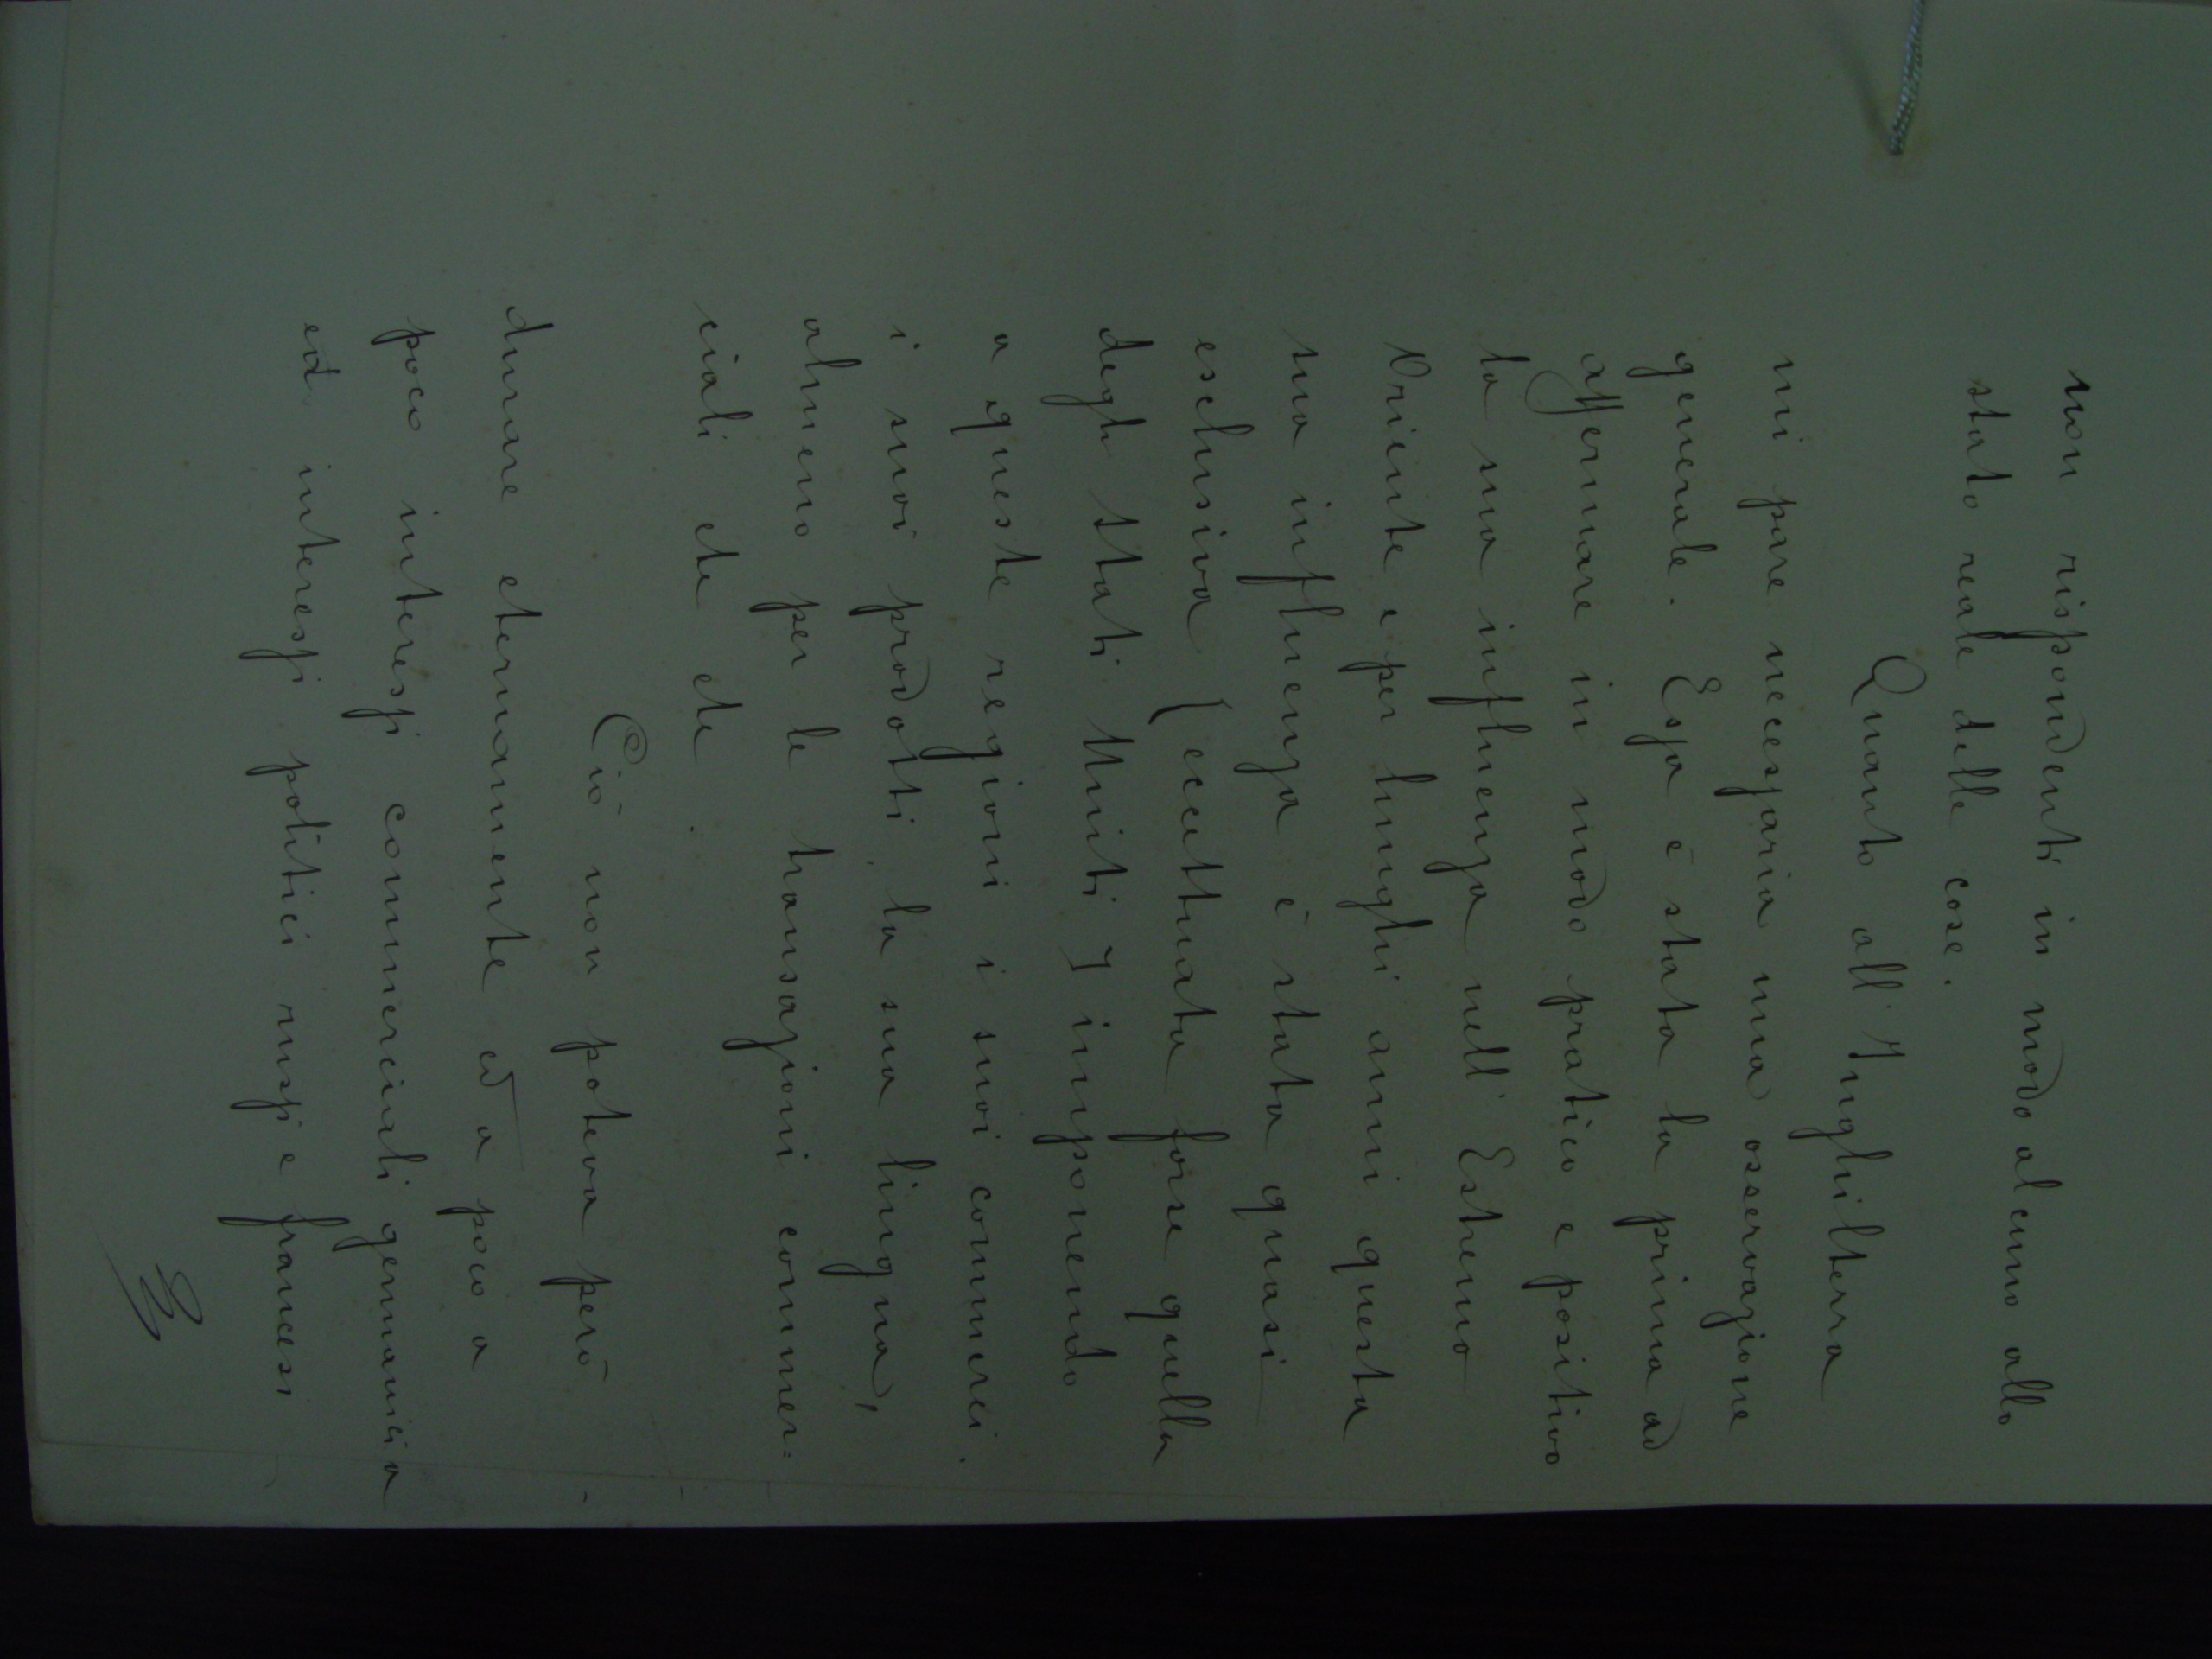 non rispondenti in modo alcuno allo
stato reale delle cose.
Quanto all'Inghilterra
mi pare necessaria una osservazione
generale. Essa è stata la prima ad
affermare in modo pratico e positivo
la sua influenza nell'Estremo
Oriente e per lunghi anni questa
sua influenza è stata quasi
esclusiva (eccettuata forse quella
degli Stati Uniti) imponendo
a queste regioni i suoi commerci.
i suoi prodotti, la sua lingua,
almeno per le transazioni commer=
ciali etc etc.
Ciò non poteva però
durare eternamente ed a poco a
poco interessi commerciali germanici a
ed interessi politici russi e francesi